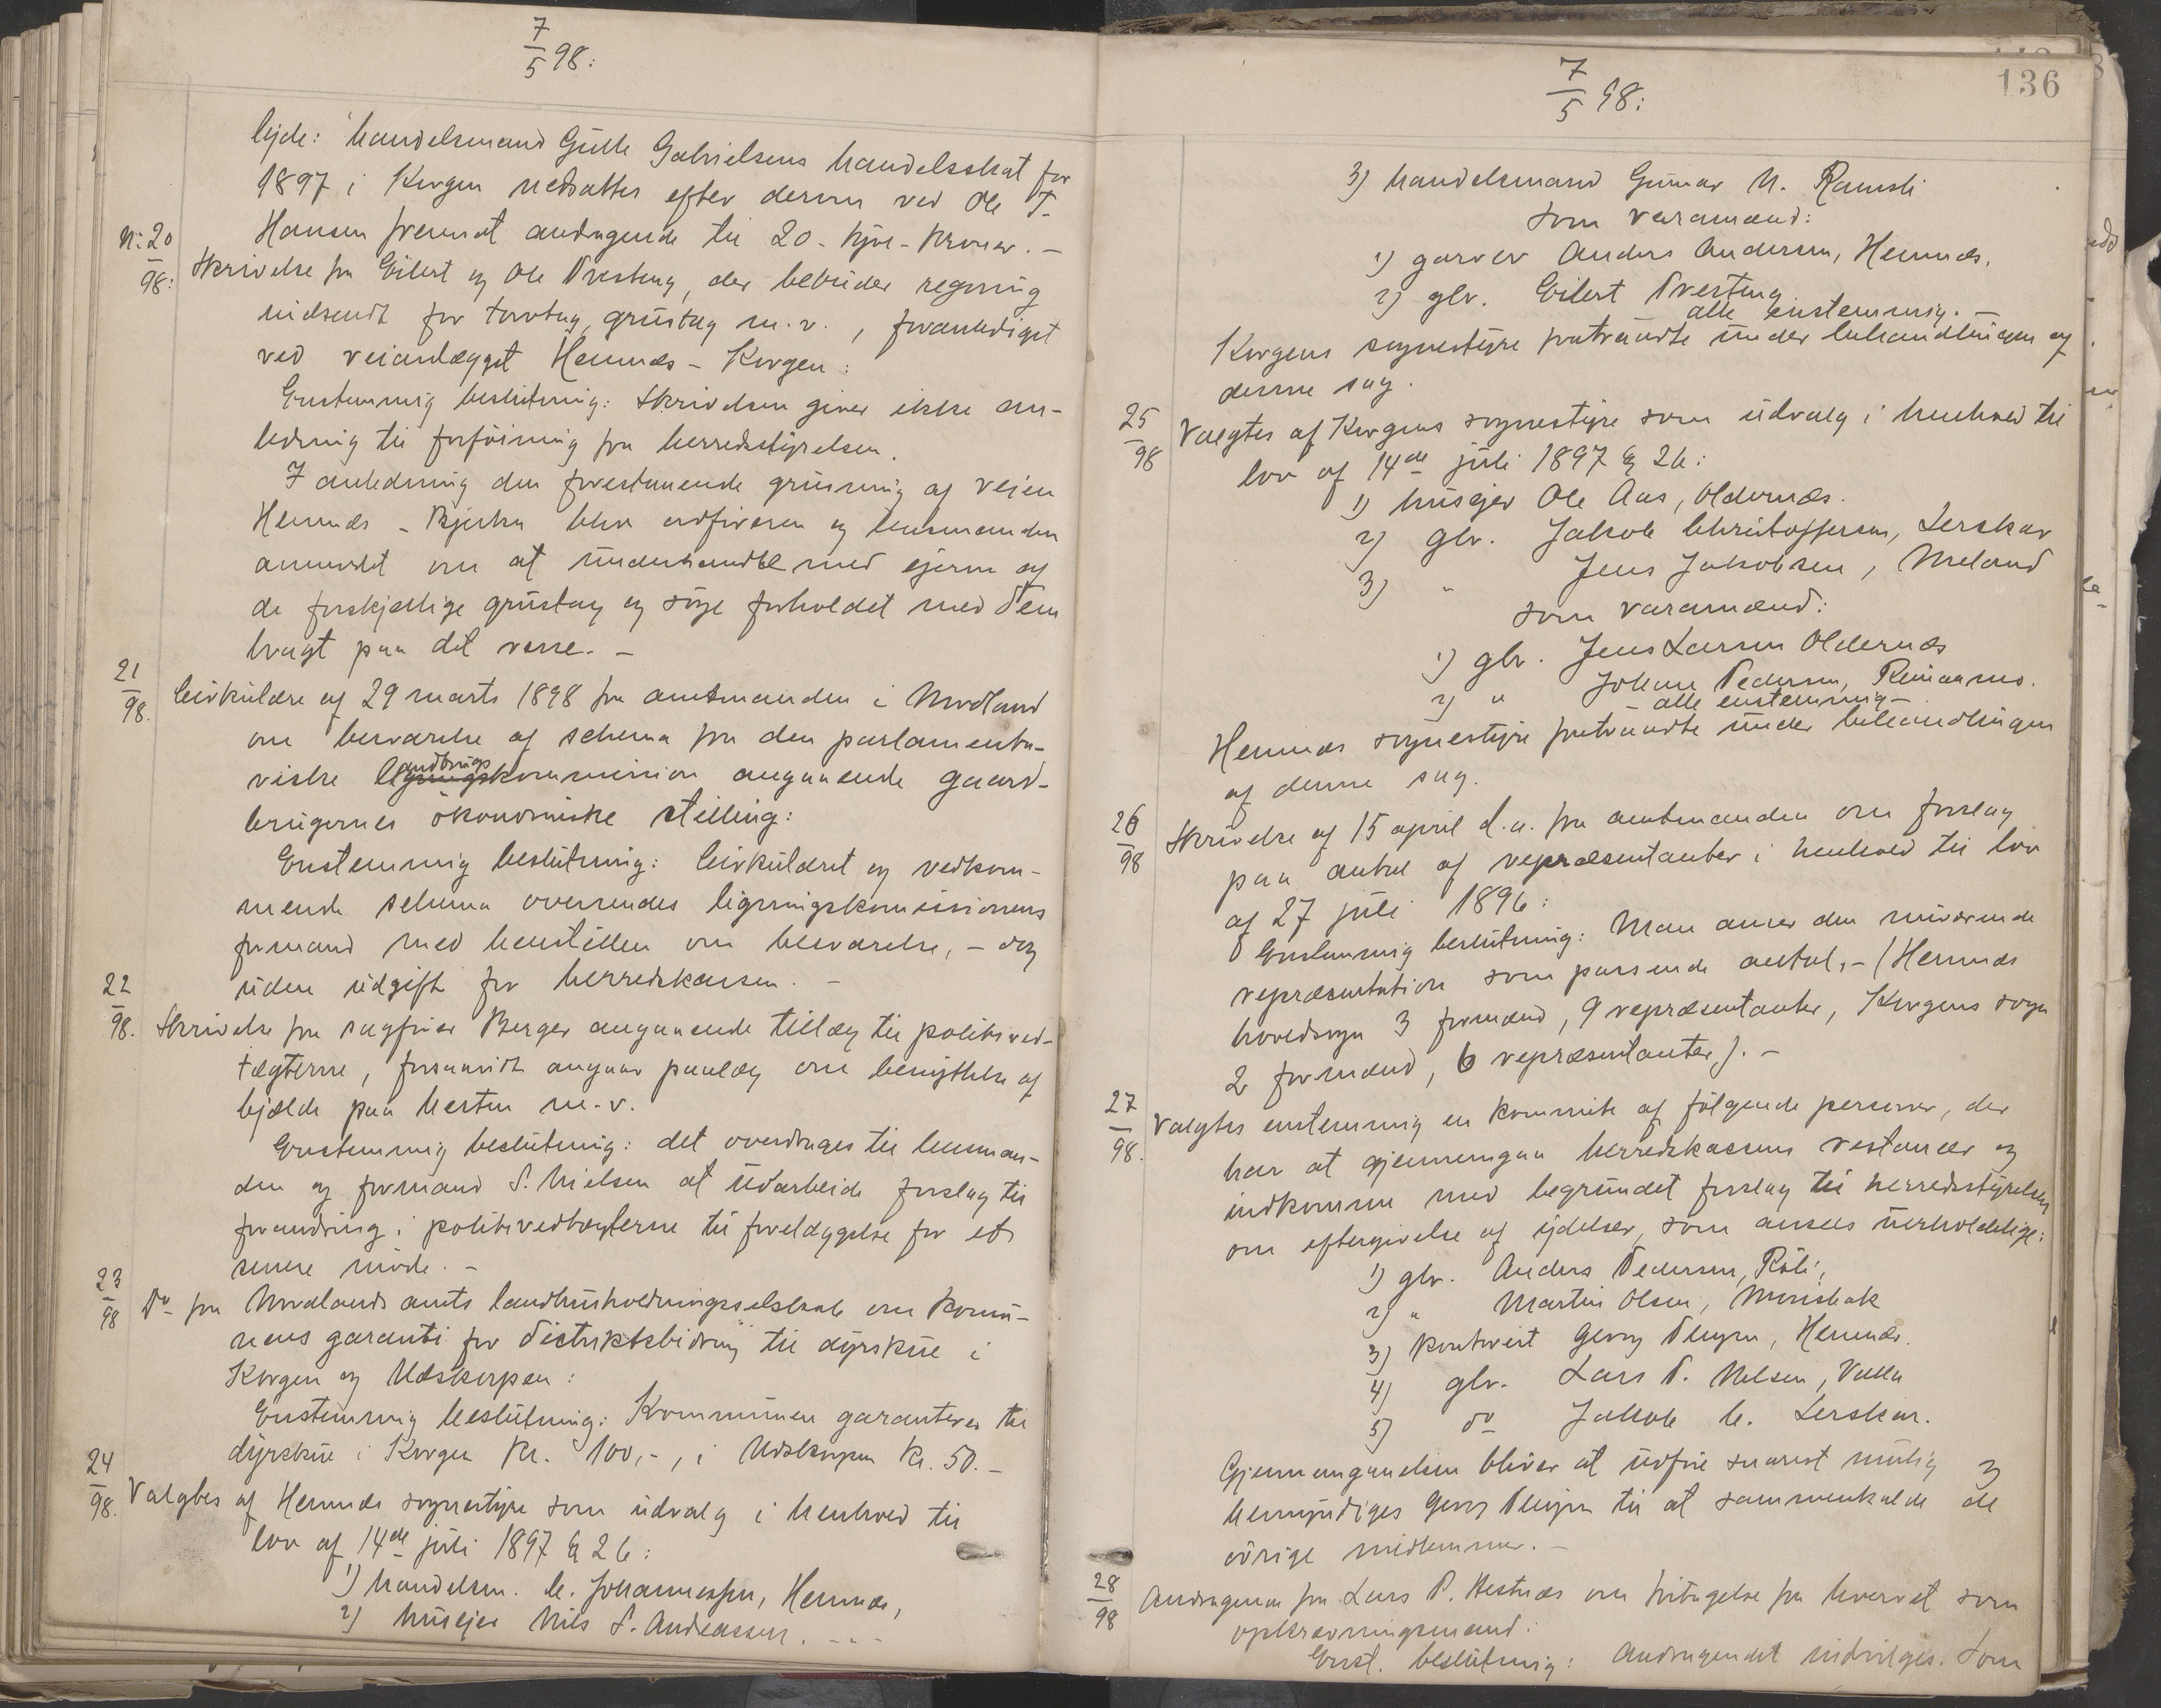 7/5 98:
lyde: handelsmand Gulle Gabrielsens handelsskat for
1897 i Korgen nedsattes efter derom ved Ole T.
Hansen fremsat andragende til 20 - tyve - kroner. -
N: 20/98: Skrivelse fra Eilert og Ole Presteng, der bebuder regning
indsendt for torvtag, grustag m. v., foranlediget
ved veianlægget Hemnæs - Korgen:
Enstemmig beslutning: Skrivelsen giver ikke an-
ledning til forføining fra herredsstyrelsen.
I anledning den forestaaende grusning af veien
Hemnæs - Bjerka blev ordføreren og lensmanden
anmodet om at underhandle med eierne af
de forskjellige grustag og søge forholdet med dem
bragt paa det rene. -
21/98. Cirkulære af 29 marts 1898 fra amtmanden i Nordland
om besvarelse af schema fra den parlamenta-
riske landbrugskommission angaaende gaard-
brugernes økonomiske stilling:
Enstemmig beslutning: Cirkulæret og vedkom-
mende schema oversendes ligningskomissionens
formand med henstillen om besvarelse, - dog
uden udgift for herredskassen. -
22/98. Skrivelse fra sagfører Berger angaaende tillæg til politived-
tægterne, forsaavidt angaar paalæg om benyttelse af
bjælde paa hesten m. v.
Enstemmig beslutning: det overdrages til lensman-
den og formand P. Nielsen at udarbeide forslag til
forandring i politivedtægterne til forelæggelse for et
senere møde. -
23/98 Do fra Nordlands amts landhusholdningsselskab om komu-
nens garanti for distriktsbidrag til dyrskue i
Korgen og Udskarpen:
Enstemmig beslutning: Kommunen garanterer til
dyrskue i Korgen kr. 100,-, i Udskarpen kr. 50. -
24/98. Valgtes af Hemnæs sognestyre som udvalg i henhold til
lov af 14de juli 1897 § 26:
1) handelsm. C. Johannessen, Hemnæs,
2) husejer Nils P. Andreassen. - - -
136
7/5 98:
3) handelsmand Gunnar N. Ramsli
som varamænd:
1) garver Anders Andersen, Hemnæs.
2) gbr. Eilert Presteng.
alle enstemmig. -
Korgens sognestyre fratraadte under behandlingen af
denne sag.
25/98 Valgtes af Korgens sognestyre som udvalg i henhold til
lov af 14de juli 1897 § 26:
1) husejer Ole Aas, Oldernæs.
2) gbr. Jakob Christoffersen, Lerskar
3) " Jens Jakobsen,
som varamænd:
1) gbr. Jens Larsen Oldernæs
2) " Johan Pedersen, Reinaamo.
- alle enstemmig -
Hemnæs sognestyre fratraadte under behandlingen
af denne sag.
26/98 Skrivelse af 15 april d. a. fra amtmanden om forslag
paa antal af repræsentanter i henhold til lov
af 27 juli 1896:
Enstemmig beslutning: Man anser den nuværende
repræsentation som passende antal, - (Hemnæs
hovedsogn 3 formænd, 9 repræsentanter, Korgens sogn
2 formænd, 6 repræsentanter). -
27/98. Valgtes enstemmig en kommite af følgende personer, der
har at gjennemgaa herredskassens restancer og
indkomme med begrundet forslag til herredsstyrelsen
om eftergivelse af ydelser, som ansees uerholdelige:
1) gbr. Anders Pedersen, Røli,
2) " Martin Olsen,
3) kontorist Georg Pleym, Hemnæs.
4) gbr. Lars P. Nilsen, Valla
5) do Jakob C. Lerskar.
Gjennemgaaelsen bliver at udføre snarest mulig og
bemyndiges Georg Pleym til at sammenkalde de
øvrige medlemmer. -
28/98 Andragende fra Lars P. Hestnæs om fritagelse fra hvervet som
opkrævningsmand:
Enst. beslutning: Andragendet indvilges. Som